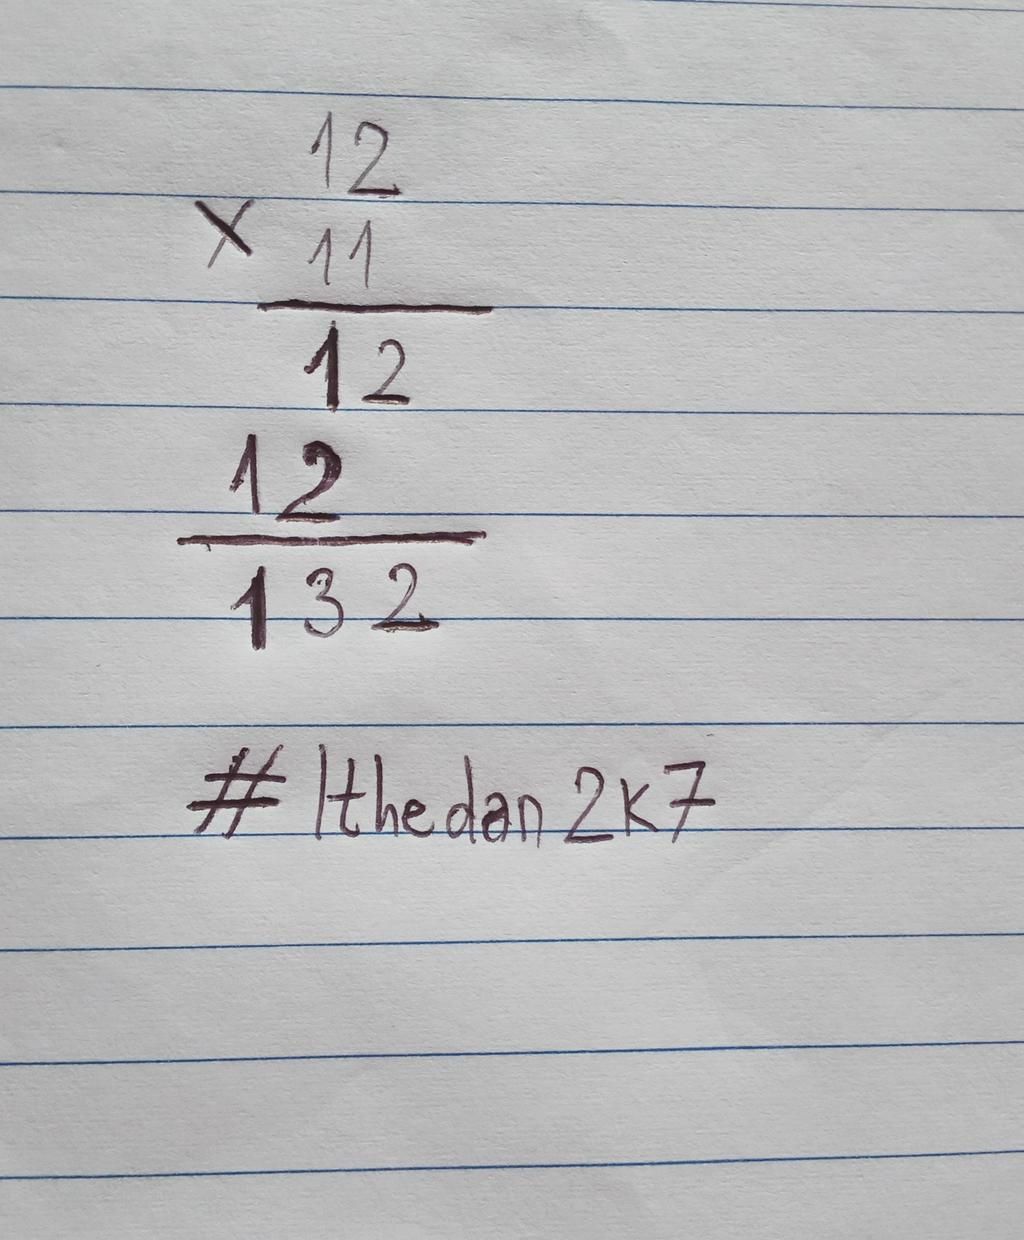 12
x 11
12
12
132
# lthedan 2k7